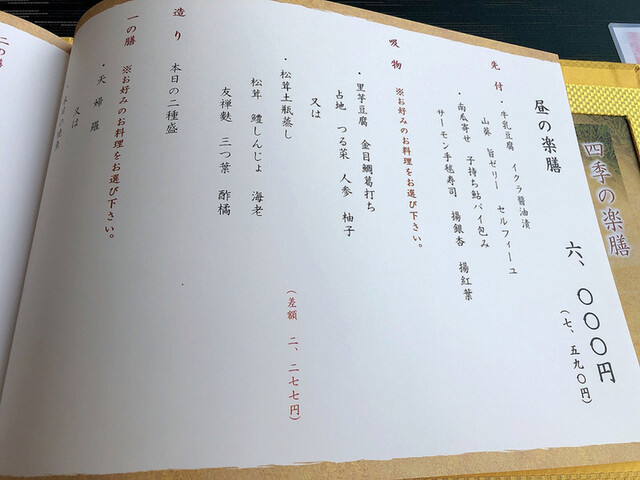 四季の楽膳
昼の楽膳　六、〇〇〇円
（七、五九〇円）
先付
・牛乳豆腐　イクラ醤油漬
山葵　旨ゼリー　セルフィーユ
・南瓜寄せ　子持ち鮎パイ包み
サーモン手毬寿司　揚銀杏　揚紅葉
吸物　※お好みのお料理をお選び下さい。
・里芋豆腐　金目鯛葛打ち
占地　つる菜　人参　柚子
又は
・松茸土瓶蒸し　（差額　二、二七七円）
松茸　鱧しんじょ　海老
友禅麩　三つ葉　酢橘
造り
本日の二種盛
一の膳　※お好みのお料理をお選び下さい。
・天婦羅
又は
二の膳